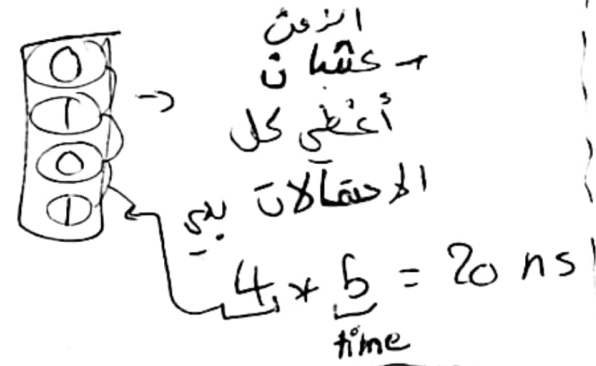 0
1
0
1
الزمن
عشان
أغطي كل
الاحتمالات بدي
4 * 5 = 20 ns
time